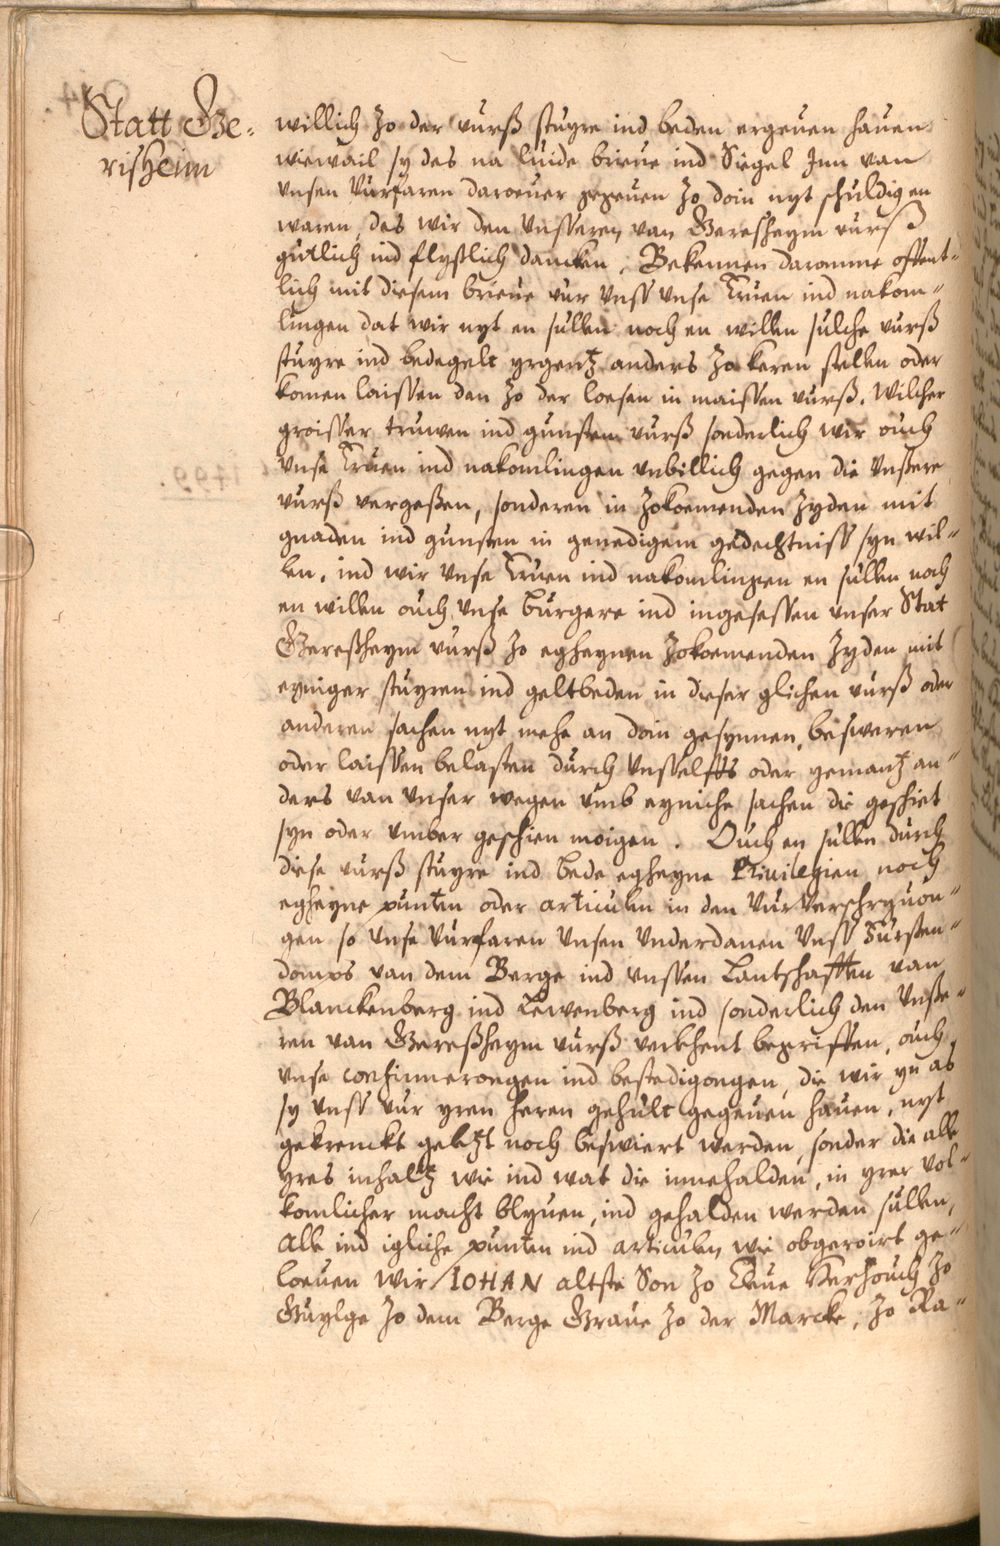 Statt Ge-
risheim
willich zo der vurß stuyre ind beden ergeuen hauen
wiewail sy des na luide brieue ind Siegel Inn van
vnsen Vurfaren daroeuer gegeuen zo doin nyt schuldig en
waren, des wir den vnsseren van Geresheym vurß
gutlich ind flyßlich dancken, Bekennen daromme offent-
lich mit diesem brieue vur vnss vnse Eruen ind nakom-
lingen dat wir nyt en sullen noch en willen sulche vurß
stuyre ind bedegelt yrgentz anders zo keren stellen oder
komen laissen dan zo der loesen in maissen vurß. Wilcher
groisser truwen ind gunsten vurß sonderlich wir ouch
vnse Eruen ind nakomlingen vnbillich gegen die vnßere
vurß vergeßen, sonderen in zokoemenden zyden mit
gnaden ind gunsten in genedigem gedechtniss syn wil-
len, ind wir vnse Eruen ind nakomlingen en sullen noch
en willen ouch vnse burgere ind ingesessen vnser Stat
Gereßheym vurß zo egheynen zokoemenden zyden mit
eyniger stuyren ind geltbeden in dieser glichen vurß oder
anderen sachen nyt mehe an doin gesynnen, besweren
oder laissen belasten durch vnsselffs oder yemantz an-
ders van vnser wegen vmb eyniche sachen die geschiet
syn oder vmber geschien moigen. Ouch en sullen durch
diese vurß stuyre ind bede egheyne Priuilegien noch
egheyne punten oder articulen in den Vurverschryuon-
gen so vnse Vurfaren vnsen vnderdanen vnss Fursten-
domps van dem Berge ind vnssen Lantschafften van
Blanckenberg ind Lewenberg ind sonderlich den vnße-
ren van Gereßheym vurß verlhent begriffen, ouch
vnse confirmerongen ind bestedigongen, die wir yn as
sy vnss vur yren heren gehult gegeuen hauen, nyt
gekrenckt geletzt noch beswiert werden, sonder die alle
yres inhaltz wie ind wat die innehalden, in yrer vol-
komlicher macht blyuen, ind gehalden werden sullen,
Alle ind igliche punten ind articulen wie obgeroirt ge-
loeuen wir IOHAN altste Son zo Cleue Hertzouch zo
Guylge zo dem Berge Graue zo der Marcke, zo Ra-